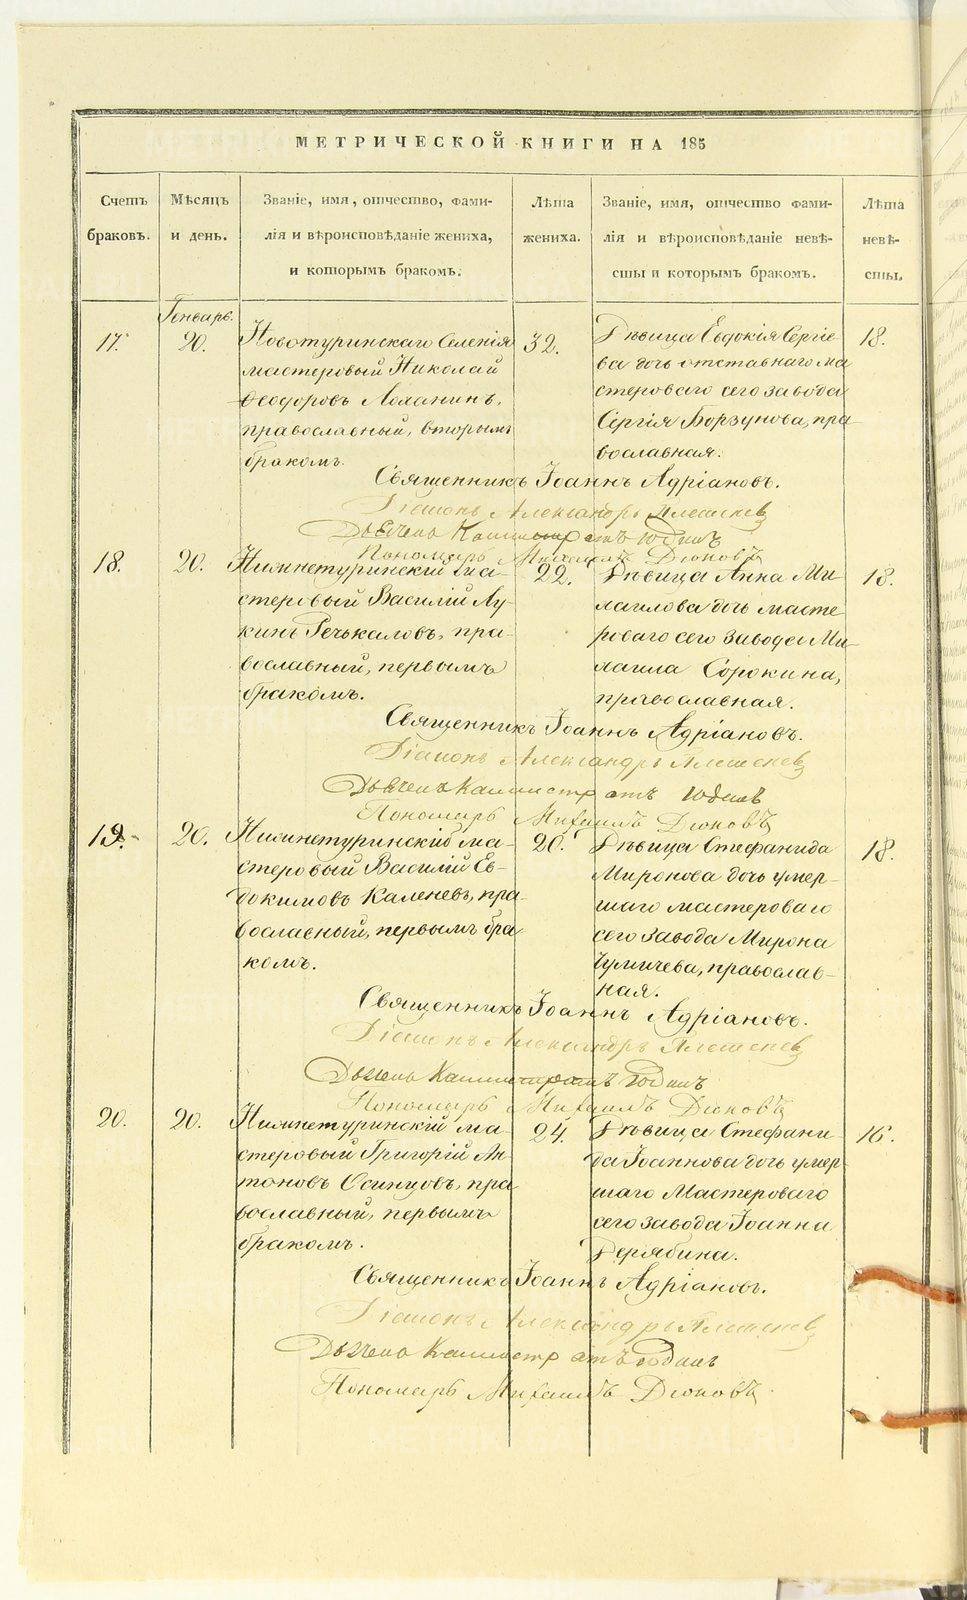 МЕТРИЧЕСКОЙ КНИГИ НА 185
Счетъ браковъ.
Мѣсяцъ и день.
Званіе, имя, отчество, фами-
лія и вѣроисповѣданіе жениха,
и которымъ бракомъ.
Лѣта жениха.
Званіе, имя, отчество фами-
лія и вѣроисповѣданіе невѣ-
сты и которымъ бракомъ.
Лѣта невѣ-
сты.
Генварь.
17.
20.
Новотуринскаго селенія
мастеровый Николай
Ѳеодоровъ Лоханинъ,
православный, вторымъ
бракомъ.
32.
Дѣвица Евдокія Сергіе-
ва дочь отставнаго ма-
стероваго сего завода
Сергія Борзунова, пра-
вославная.
18.
Священникъ Іоаннъ Адріановъ.
Діаконъ Александръ
Пономарь Михаилъ Дюковъ
18.
20.
Нижнетуринскій ма-
стеровый Василій Лу-
кинъ Речькаловъ, пра-
вославный, первымъ
бракомъ.
22.
Дѣвица Анна Ми-
хаилова дочь масте-
роваго сего завода Ми-
хаила Сорокина,
православная.
18.
Священникъ Іоаннъ Адріановъ.
Діаконъ Александръ
Пономарь Михаилъ Дюковъ
19.
20.
Нижнетуринскій ма-
стеровый Василій Ев-
докимовъ Каленевъ, пра-
вославный, первымъ бра-
комъ.
20.
Дѣвица Стефанида
Миронова дочь умер-
шаго мастероваго
сего завода Мирона
Чумичева, православ-
ная.
18.
Священникъ Іоаннъ Адріановъ.
Діаконъ Александръ
Пономарь Михаилъ Дюковъ
20.
20.
Нижнетуринскій ма-
стеровый Григорій Ан-
тоновъ Осинцовъ, пра-
вославный, первымъ
бракомъ.
24.
Дѣвица Стефани-
да Іоаннова дочь умер-
шаго Мастероваго
сего завода Іоанна
Дерябина.
16.
Священникъ Іоаннъ Адріановъ.
Діаконъ Александръ
Пономарь Михаилъ Дюковъ